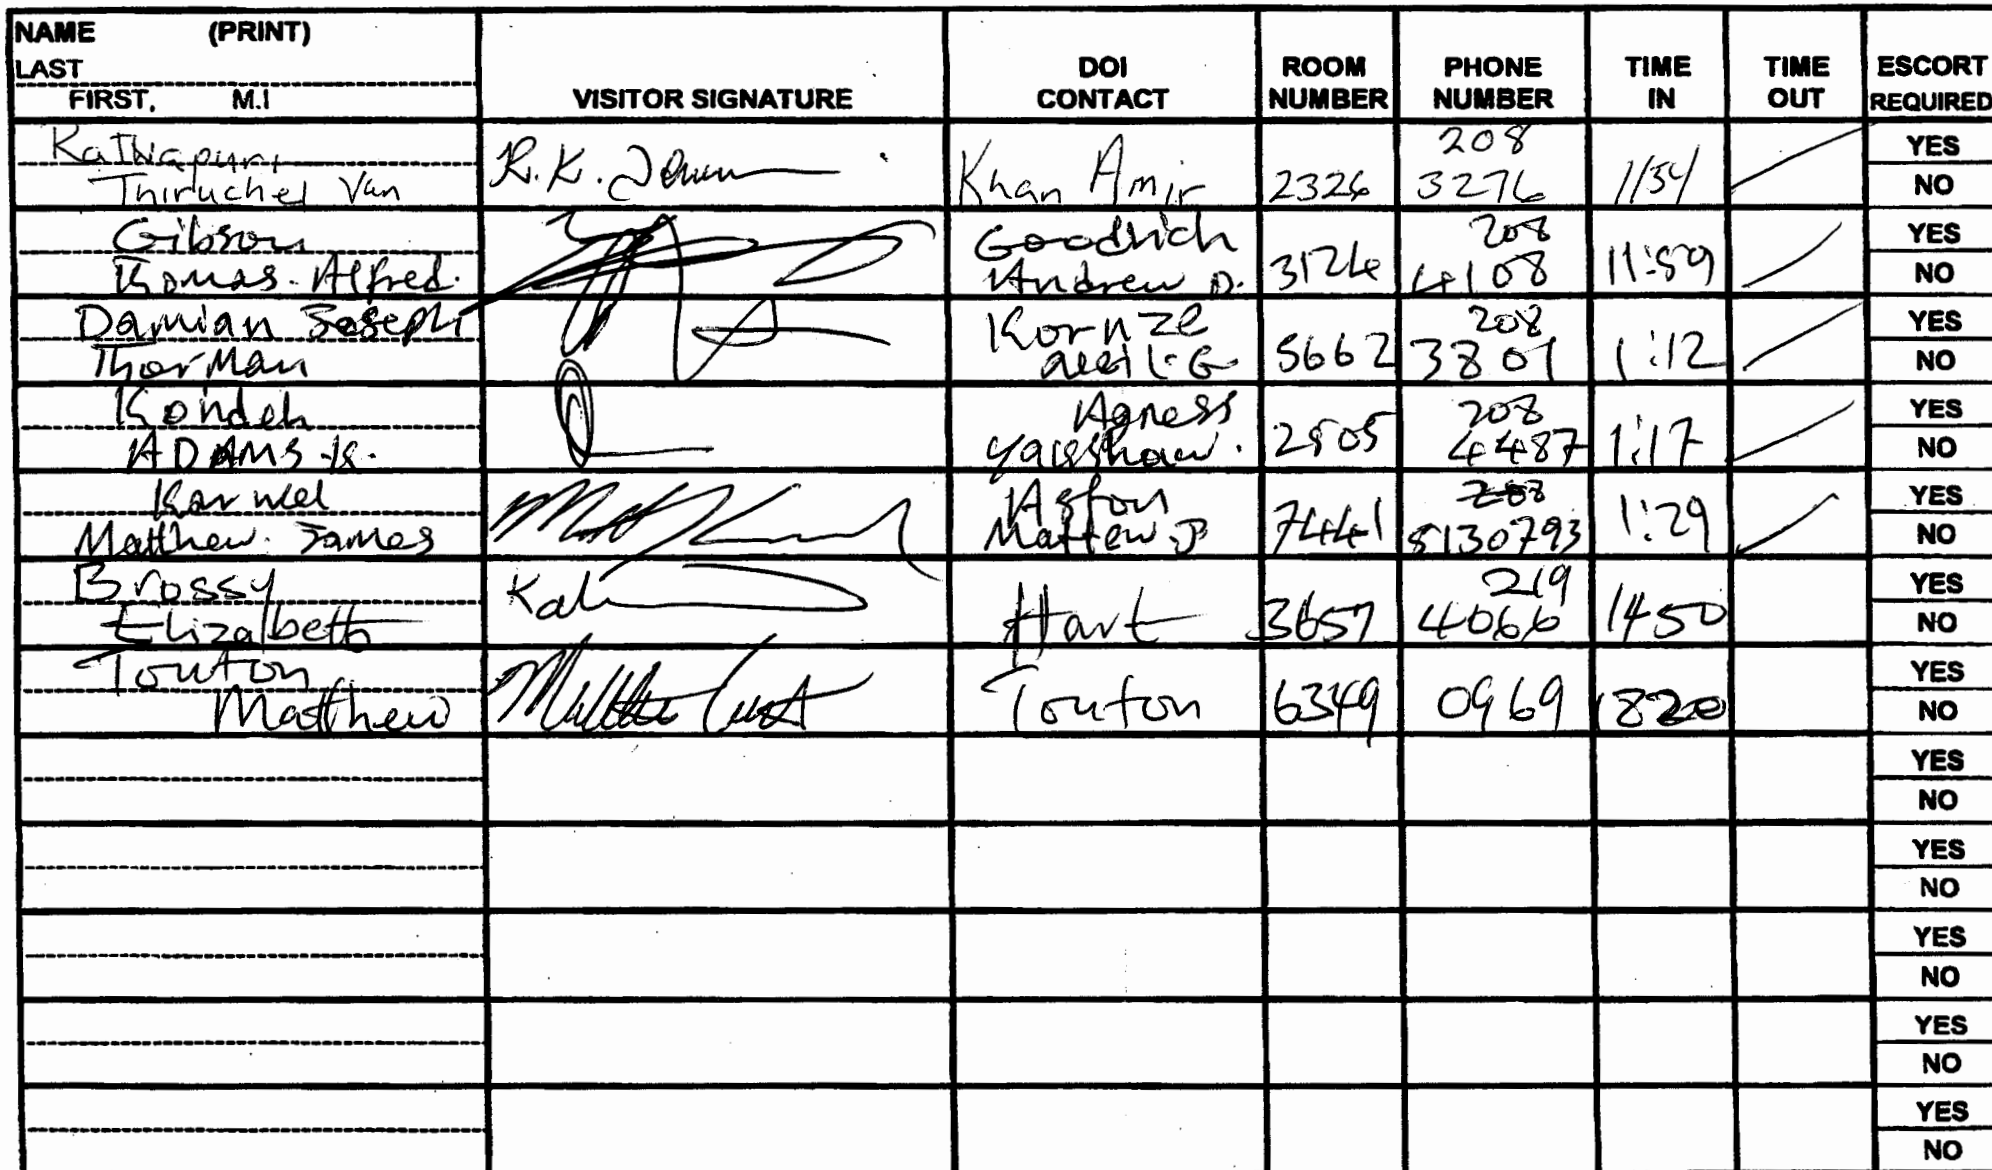 NAME (PRINT)
LAST
FIRST, M.I
VISITOR SIGNATURE
DOI CONTACT
ROOM NUMBER
PHONE NUMBER
TIME IN
TIME OUT
ESCORT REQUIRED
Kathiapuri
Thiruchel Van
R.K.
Khan Amir
2326
208
3276
YES
NO
Gibson
Thomas. Alfred.
Goodrich
Andrew D.
3124
208
4108
11:59
YES
NO
Damian Joseph
Thorman
Kornze
Neil. G
5662
208
3801
1:12
YES
NO
Kondeh
ADAMS .K.
Agness
2805
208
4487
1:17
YES
NO
Matthew. James
Mattew. J
7441
208
5130793
1:29
YES
NO
Brossy
Elizalbeth
Hart
3657
219
4066
1450
YES
NO
Touton
Matthew
Touton
6349
0969
1820
YES
NO
YES
NO
YES
NO
YES
NO
YES
NO
YES
NO